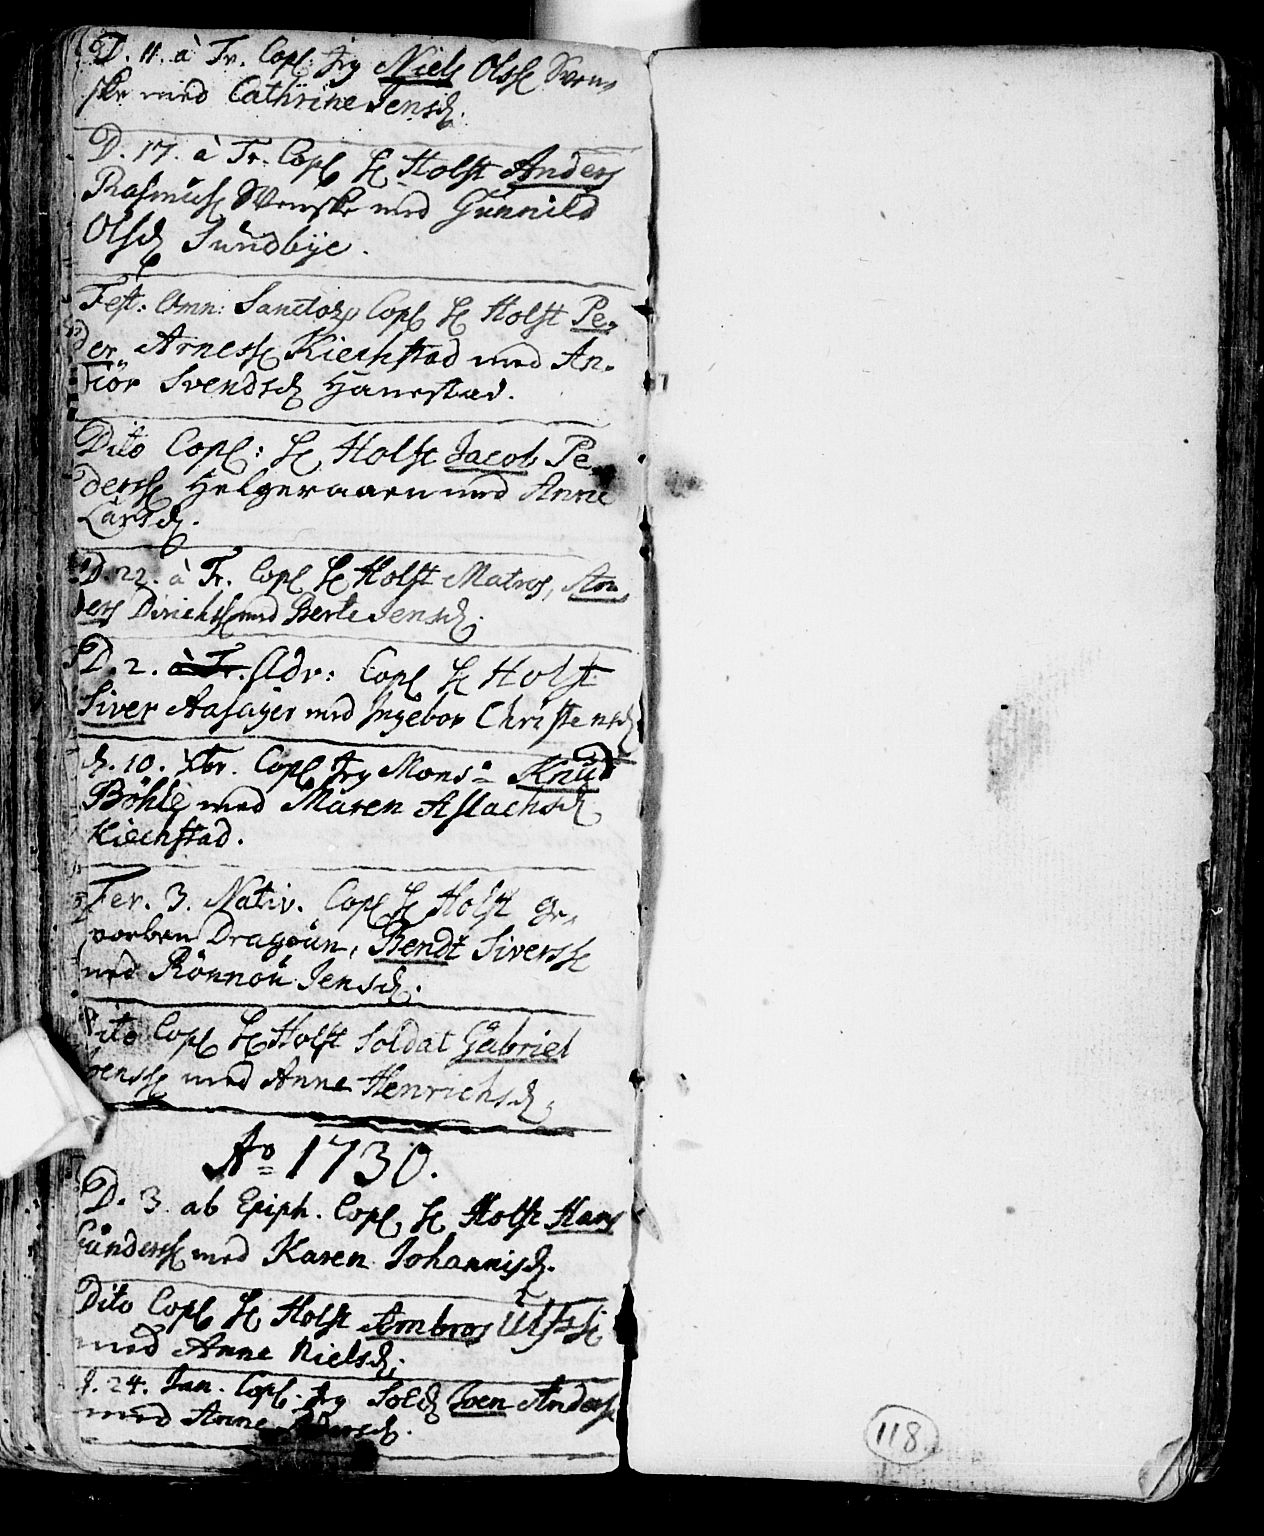 D. 11. à Tr. Copl. Jeg Niels Olss Sven-
ske med Cathrine Jensd.
D. 17. à Tr. Copl H Holst Anders
Rasmuss Svenske med Gunnild
Olsd Sundbye.
Fest: Omn: Sanctor Copl H Holst Pe-
der Arness Kiechstad med An-
giör Svendsd Hanestad.
Dito Copl: H Holst Jacob Pe-
derss Helgeraaen med Anne
Larsd.
D. 22. à Tr. Copl H Holst Matros, An-
ders Dirichs med Berte Jensd.
D. 2. à Tr. Adv: Copl H Holst
Siver Aasager med Ingebor Christensd
d. 10. Xbr. Copl Jeg Mons: Knud
Böhle med Maren Aslachsd
Kiechstad.
Fer. 3. Nativ. Copl H Holst ge-
vorben Dragoun, Bendt Siverss
med Rönnou Jensd.
Dito Copl H Holst Soldat Gabriel
Jenss med Anne Henrichsd.
Ao 1730.
D. 3 ab Epiph. Copl H Holst Hans
Gunderss med Karen Johannisd.
Dito Copl H Holst Ambros Ulfss
med Anne Nielsd.
d. 24. Jan. Copl. Jeg Sold Iven Anderss
med Anne
118